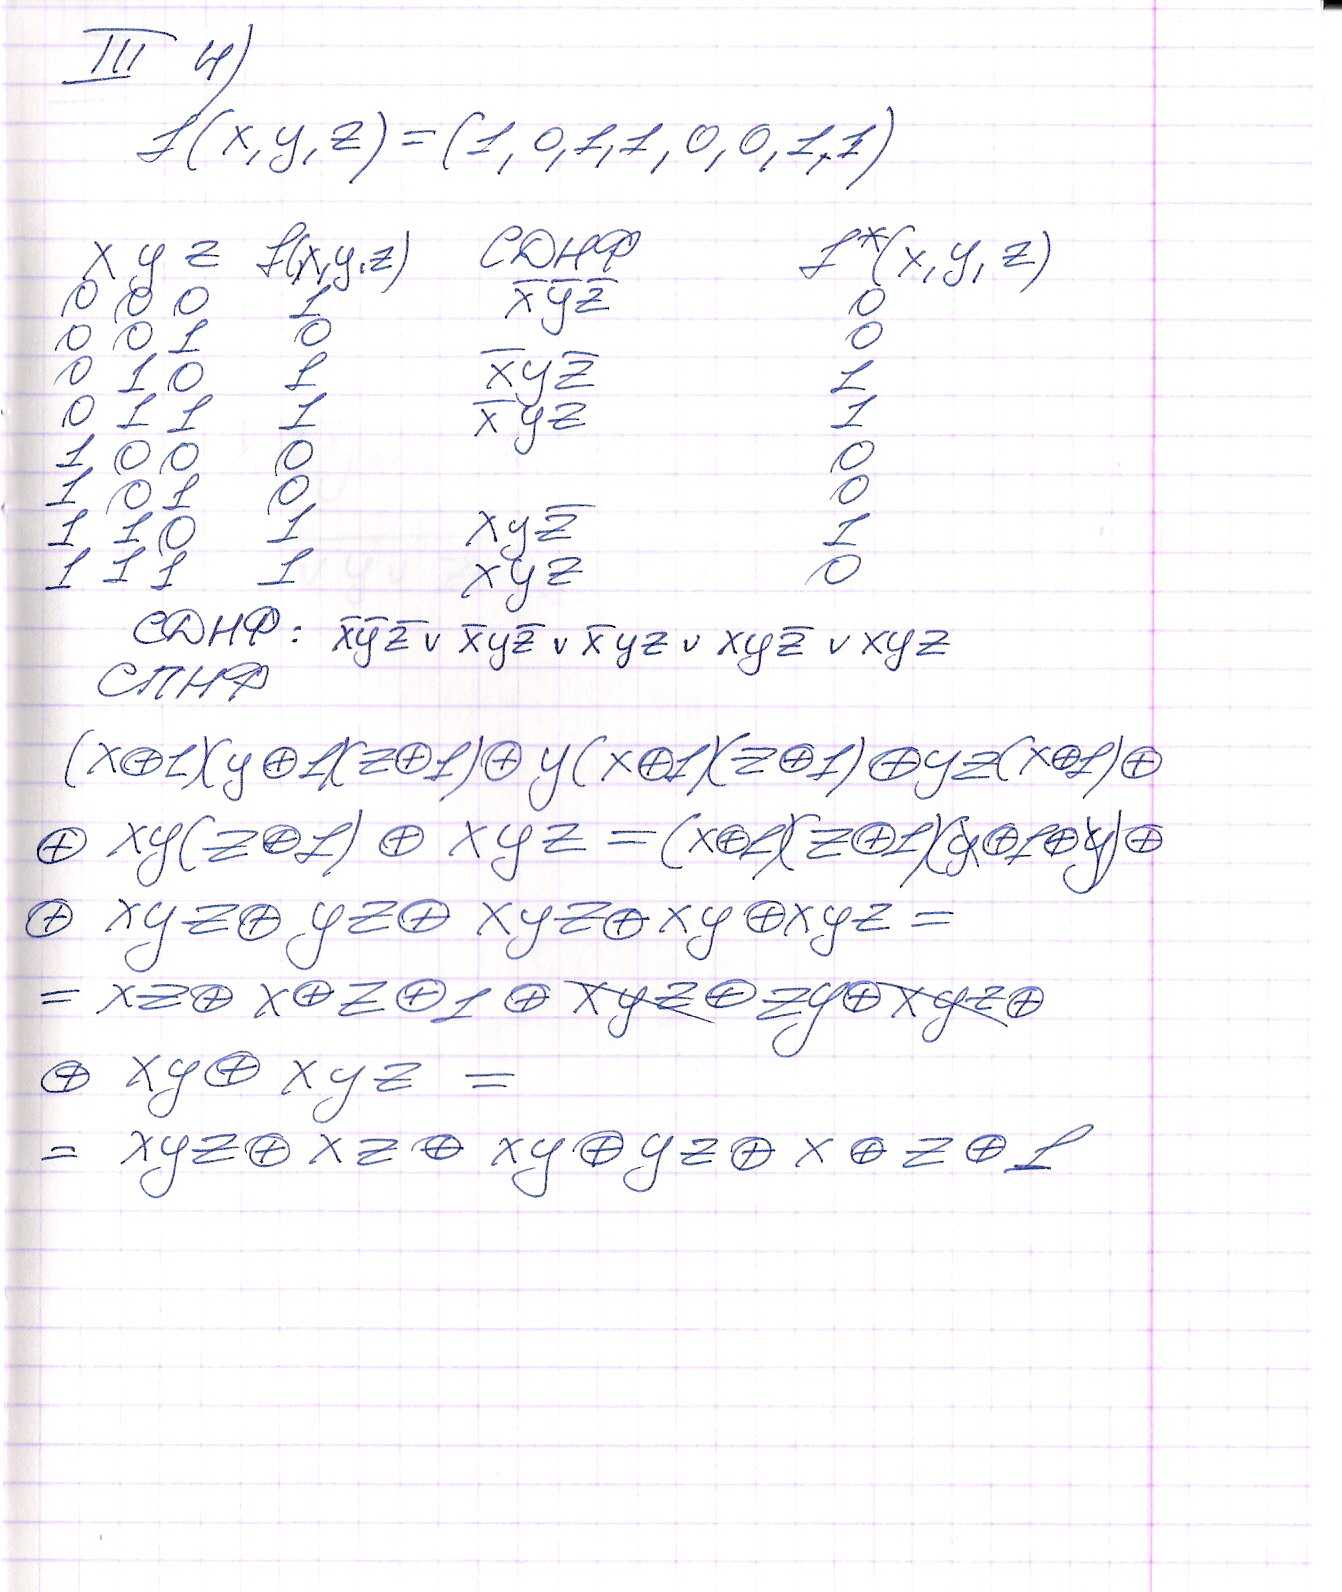 III 4)
f(x,y,z)=(1,0,1,1,0,0,1,1)
x y z f(x,y,z) СДНФ f*(x,y,z)
0 0 0 1 x̅y̅z̅ 0
0 0 1 0 0
0 1 0 1 x̅yz̅ 1
0 1 1 1 x̅yz 1
1 0 0 0 0
1 0 1 0 0
1 1 0 1 xyz̅ 1
1 1 1 1 xyz 0
СДНФ: x̅y̅z̅ v x̅yz̅ v x̅yz v xyz̅ v xyz
СПНФ
(x⊕1)(y⊕1)(z⊕1)⊕y(x⊕1)(z⊕1)⊕yz(x⊕1)⊕
⊕ xy(z⊕1) ⊕ xyz =(x⊕1)(z⊕1)(y⊕1⊕y)⊕
⊕ xyz⊕ yz⊕ xyz⊕xy⊕xyz =
= xz⊕ x⊕z⊕1 ⊕ xyz⊕zy⊕xyz⊕
⊕ xy⊕ xyz =
= xyz⊕ xz⊕ xy⊕yz⊕ x ⊕ z ⊕ 1